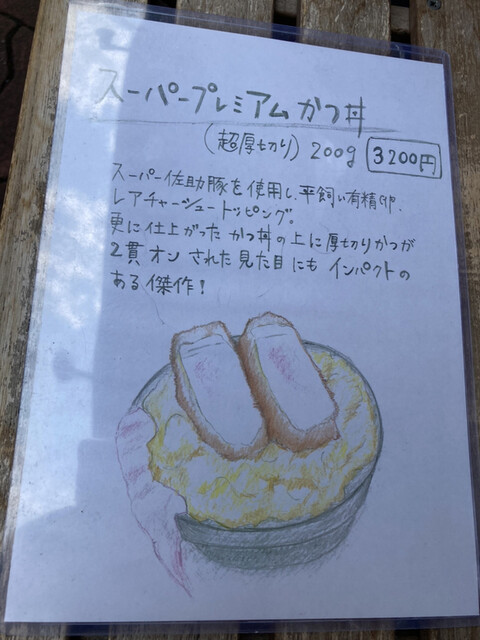 スーパープレミアムかつ丼
(超厚切り) 200g 3200円
スーパー佐助豚を使用し、平飼い有精卵、
レアチャーシュートッピング。
更に仕上がったかつ丼の上に厚切りかつが
2貫オンされた見た目にもインパクトの
ある傑作!